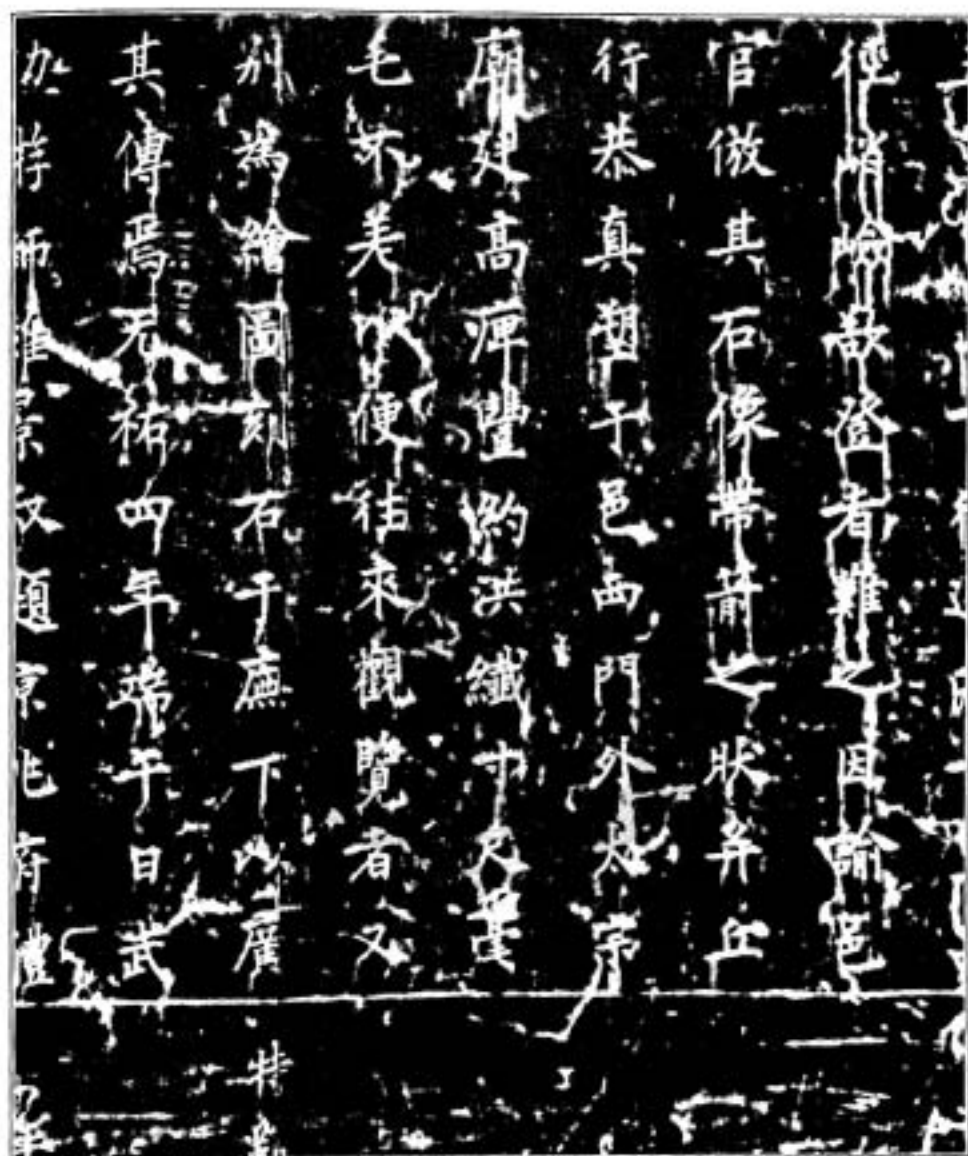 徑峭嶮欲登者難之因諭邑
官倣其石像帶箭之狀并丘
行恭真塑于邑西門外太宗
廟廷高庳豐約洪纖寸尺毫
毛不差以便往來觀覽者又
別為繪圖刻石于廡下以廣
其傳焉元祐四年端午日武
功游師雄景叔題京兆府醴
特